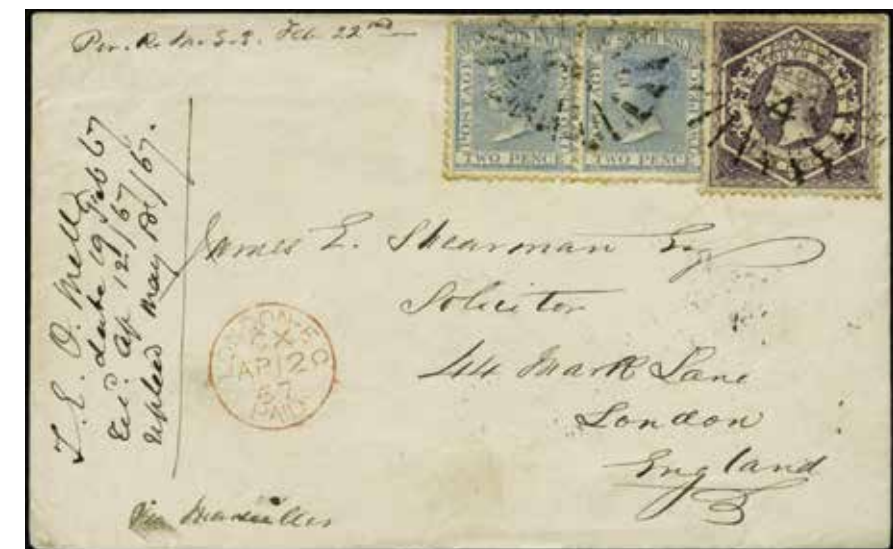 Per. R. M. S. S. Feb. 22nd
POSTAGE
NEW SOUTH WALES
TWO PENCE
POSTAGE
NEW SOUTH WALES
TWO PENCE
4
T. E. O. Mell
date 19 Feb 67
Recd. Ap 12/67
replied May 20/67.
James E. Shearman Esq
Solicitor
44 Mark Lane
London
England
LONDON E.C
CX
AP 12 C
67
PAID
Via Marseilles